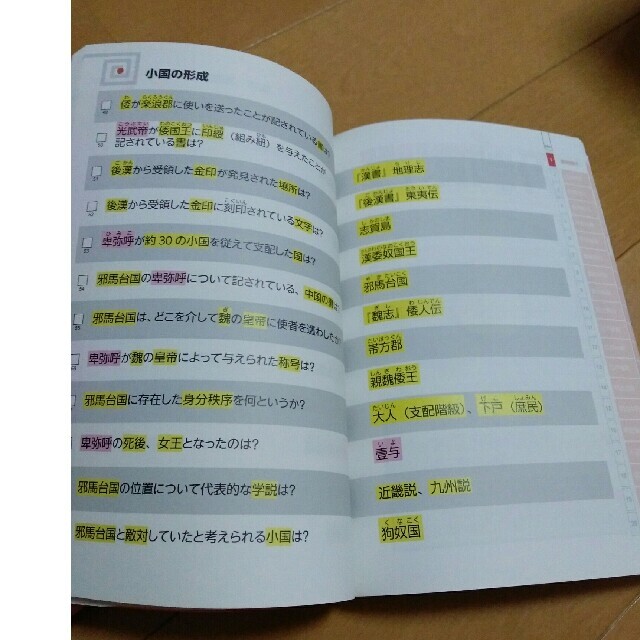 小国の形成
倭が楽浪郡に使いを送ったことが記されている書は?
光武帝が倭国王に印綬(組み紐)を与えたことが
記されている書は?
後漢から受領した金印が発見された場所は?
後漢から受領した金印に刻印されている文字は?
卑弥呼が約30の小国を従えて支配した国は?
邪馬台国の卑弥呼について記されている、中国の書は?
邪馬台国は、どこを介して魏の皇帝に使者を遣わしたか?
卑弥呼が魏の皇帝によって与えられた称号は?
邪馬台国に存在した身分秩序を何というか?
卑弥呼の死後、女王となったのは?
邪馬台国の位置について代表的な学説は?
邪馬台国と敵対していたと考えられる小国は?
『漢書』地理志
『後漢書』東夷伝
志賀島
漢委奴国王
邪馬台国
『魏志』倭人伝
帯方郡
親魏倭王
大人(支配階級)、下戸(庶民)
壹与
近畿説、九州説
狗奴国